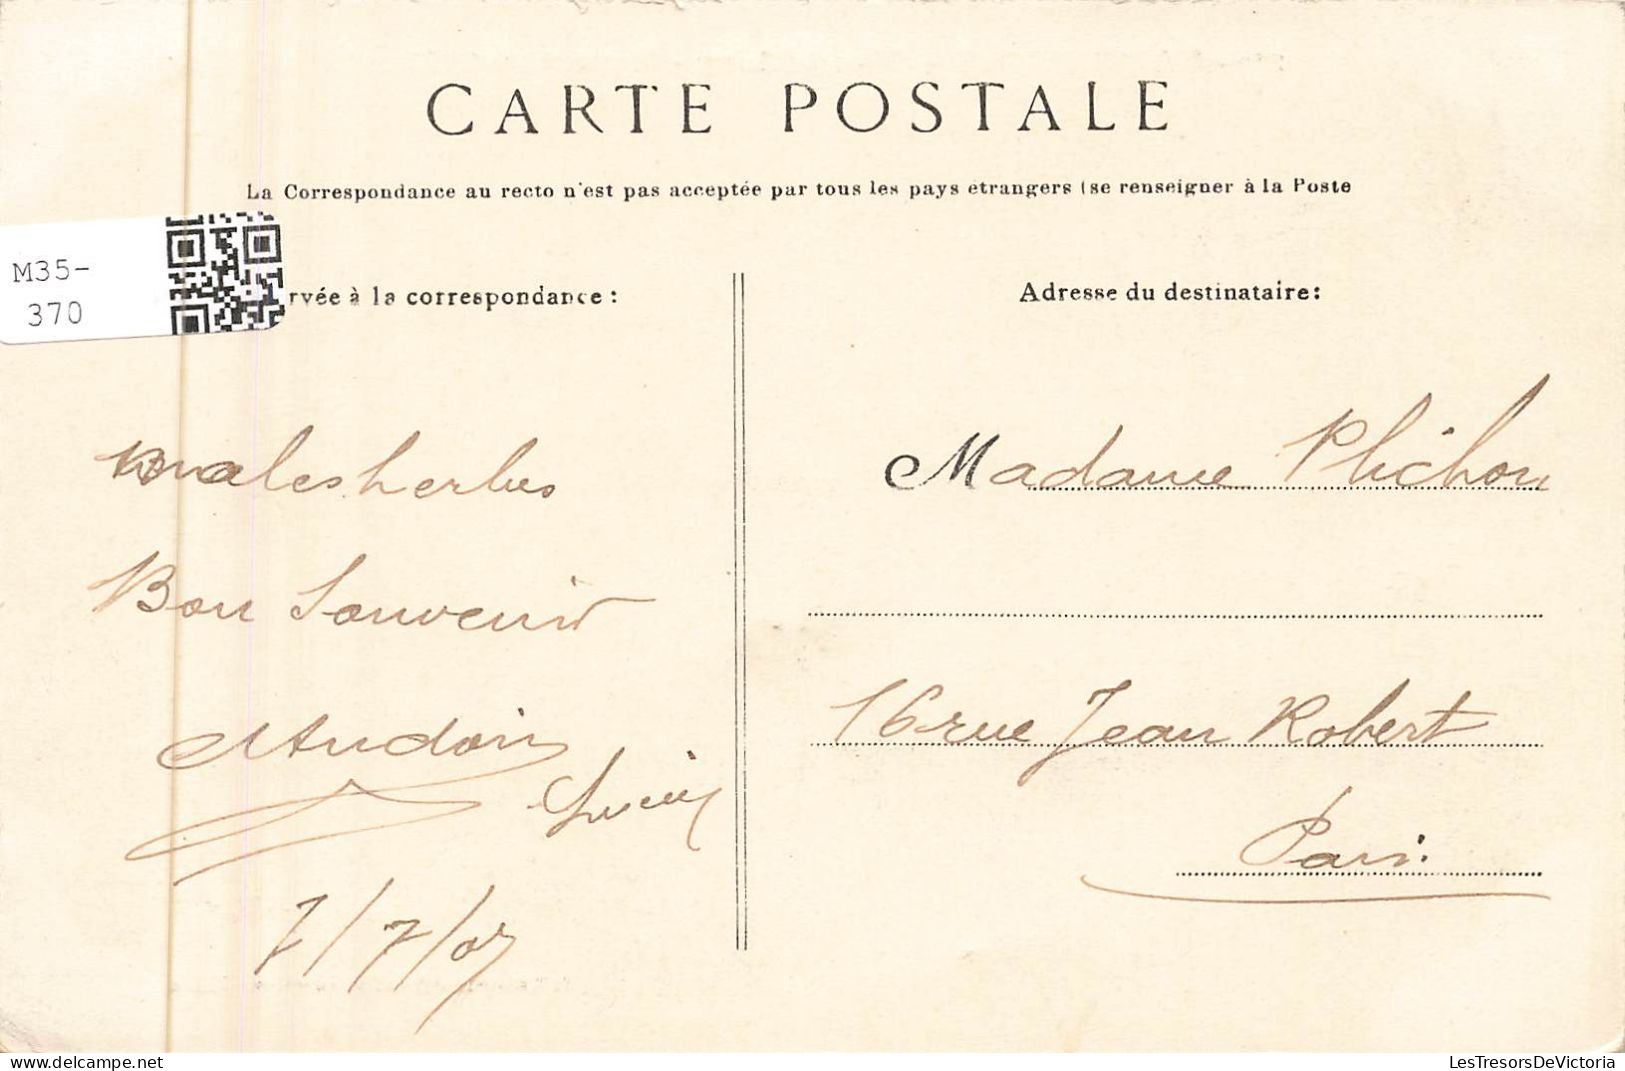 CARTE POSTALE
La Correspondance au recto n'est pas acceptée par tous les pays etrangers (se renseigner à la Poste
M35-
370
rvée à la correspondance :
Malesherbes
Bon Souvenir
Audoin
7/7/07
Adresse du destinataire:
Madame Plichon
16 rue Jean Robert
Paris.
www.delcampe.net
LesTresorsDeVictoria